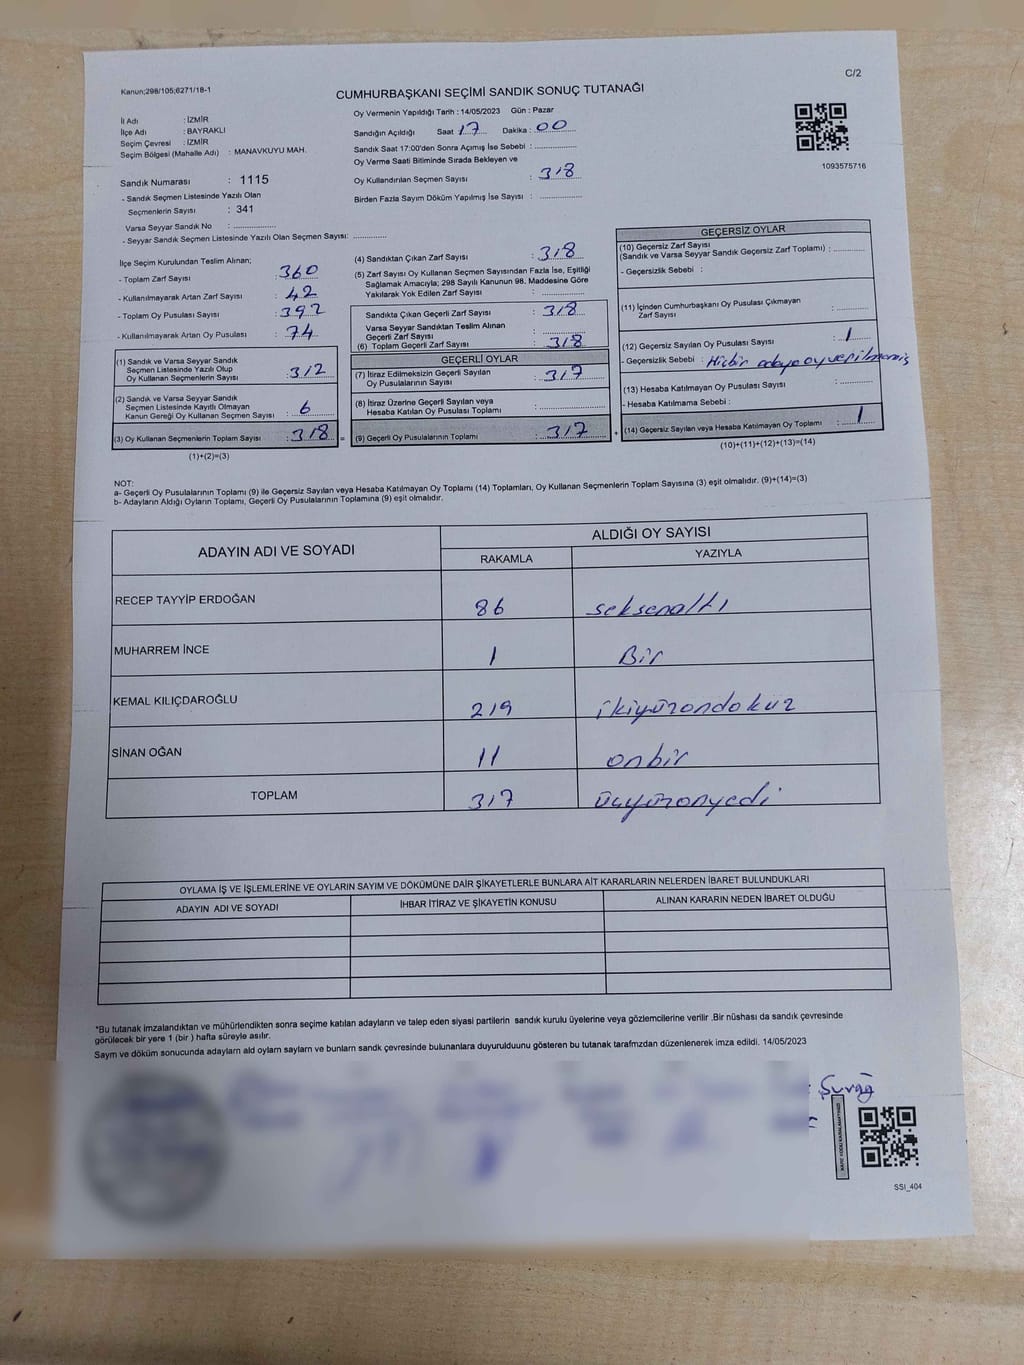 C/2
Kanun;298/105;6271/18-1
CUMHURBAŞKANI SEÇİMİ SANDIK SONUÇ TUTANAĞI
İl Adı : İZMİR
İlçe Adı : BAYRAKLI
Seçim Çevresi : İZMİR
Seçim Bölgesi (Mahalle Adı) : MANAVKUYU MAH.
Sandık Numarası : 1115
- Sandık Seçmen Listesinde Yazılı Olan
Seçmenlerin Sayısı : 341
Varsa Seyyar Sandık No : ................
- Seyyar Sandık Seçmen Listesinde Yazılı Olan Seçmen Sayısı: ............
Oy Vermenin Yapıldığı Tarih : 14/05/2023 Gün : Pazar
Sandığın Açıldığı Saat 17 Dakika : 00
Sandık Saat 17:00'den Sonra Açmış İse Sebebi : ................
Oy Verme Saati Bitiminde Sırada Bekleyen ve
Oy Kullandırılan Seçmen Sayısı : 318
Birden Fazla Sayım Döküm Yapılmış İse Sayısı : ................
1093575716
İlçe Seçim Kurulundan Teslim Alınan;
- Toplam Zarf Sayısı : 360
- Kullanılmayarak Artan Zarf Sayısı : 42
- Toplam Oy Pusulası Sayısı : 392
- Kullanılmayarak Artan Oy Pusulası : 74
(1) Sandık ve Varsa Seyyar Sandık
Seçmen Listesinde Yazılı Olup
Oy Kullanan Seçmenlerin Sayısı : 312
(2) Sandık ve Varsa Seyyar Sandık
Seçmen Listesinde Kayıtlı Olmayan
Kanun Gereği Oy Kullanan Seçmen Sayısı : 6
(3) Oy Kullanan Seçmenlerin Toplam Sayısı : 318
(1)+(2)=(3)
(4) Sandıktan Çıkan Zarf Sayısı : 318
(5) Zarf Sayısı Oy Kullanan Seçmen Sayısından Fazla İse, Eşitliği
Sağlamak Amacıyla; 298 Sayılı Kanunun 98. Maddesine Göre
Yakılarak Yok Edilen Zarf Sayısı : ................
Sandıkta Çıkan Geçerli Zarf Sayısı : 318
Varsa Seyyar Sandıktan Teslim Alınan
Geçerli Zarf Sayısı : ................
(6) Toplam Geçerli Zarf Sayısı : 318
GEÇERLİ OYLAR
(7) İtiraz Edilmeksizin Geçerli Sayılan
Oy Pusulalarının Sayısı : 317
(8) İtiraz Üzerine Geçerli Sayılan veya
Hesaba Katılan Oy Pusulası Toplamı : ................
= (9) Geçerli Oy Pusulalarının Toplamı : 317
GEÇERSİZ OYLAR
(10) Geçersiz Zarf Sayısı
(Sandık ve Varsa Seyyar Sandık Geçersiz Zarf Toplamı) : ............
- Geçersizlik Sebebi :
(11) İçinden Cumhurbaşkanı Oy Pusulası Çıkmayan
Zarf Sayısı : ............
(12) Geçersiz Sayılan Oy Pusulası Sayısı : 1
- Geçersizlik Sebebi : Hiçbir adaya oy verilmemiş
(13) Hesaba Katılmayan Oy Pusulası Sayısı : ............
- Hesaba Katılmama Sebebi :
+ (14) Geçersiz Sayılan veya Hesaba Katılmayan Oy Toplamı : 1
(10)+(11)+(12)+(13)=(14)
NOT:
a- Geçerli Oy Pusulalarının Toplamı (9) ile Geçersiz Sayılan veya Hesaba Katılmayan Oy Toplamı (14) Toplamları, Oy Kullanan Seçmenlerin Toplam Sayısına (3) eşit olmalıdır. (9)+(14)=(3)
b- Adayların Aldığı Oyların Toplamı, Geçerli Oy Pusulalarının Toplamına (9) eşit olmalıdır.
ADAYIN ADI VE SOYADI ALDIĞI OY SAYISI
RAKAMLA YAZIYLA
RECEP TAYYİP ERDOĞAN 86 seksenaltı
MUHARREM İNCE 1 Bir
KEMAL KILIÇDAROĞLU 219 ikiyüzondokuz
SİNAN OĞAN 11 onbir
TOPLAM 317 üçyüzonyedi
OYLAMA İŞ VE İŞLEMLERİNE VE OYLARIN SAYIM VE DÖKÜMÜNE DAİR ŞİKAYETLERLE BUNLARA AİT KARARLARIN NELERDEN İBARET BULUNDUKLARI
ADAYIN ADI VE SOYADI İHBAR İTİRAZ VE ŞİKAYETİN KONUSU ALINAN KARARIN NEDEN İBARET OLDUĞU
*Bu tutanak imzalandıktan ve mühürlendikten sonra seçime katılan adayların ve talep eden siyasi partilerin sandık kurulu üyelerine veya gözlemcilerine verilir .Bir nüshası da sandık çevresinde
görülecek bir yere 1 (bir ) hafta süreyle asılır.
Saym ve döküm sonucunda adaylarn ald oylarn saylarn ve bunlarn sandk çevresinde bulunanlara duyurulduunu gösteren bu tutanak tarafmzdan düzenlenerek imza edildi. 14/05/2023
SSI_404